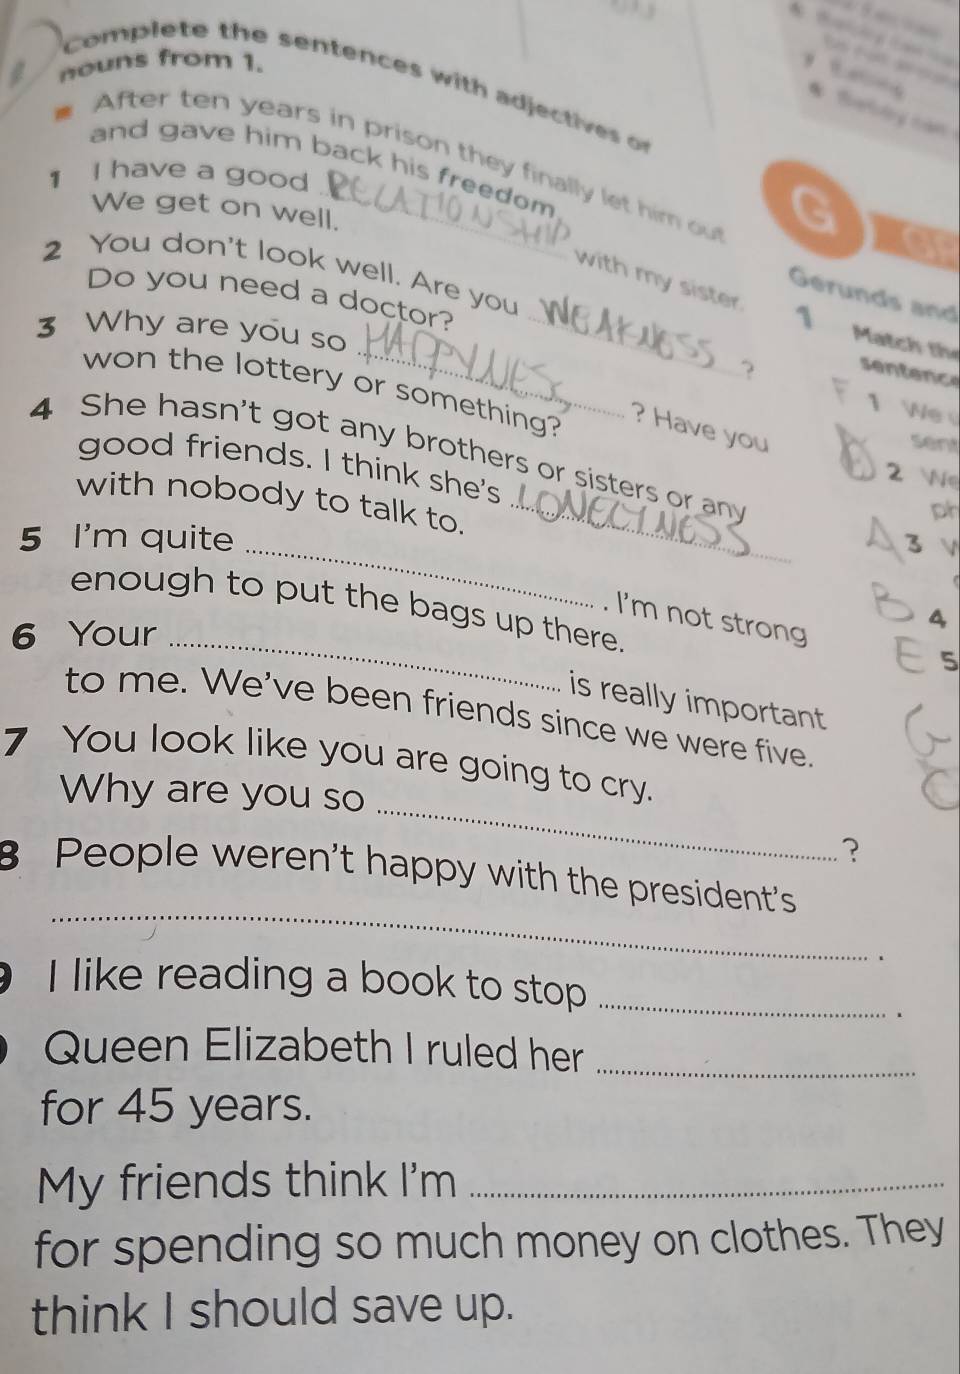 complete the sentences with adjectives or
nouns from 1.
After ten years in prison they finally let him out
and gave him back his freedom.
1 I have a good RELATIONSHIP with my sister.
We get on well.
2 You don't look well. Are you WEAKNESS ?
Do you need a doctor?
3 Why are you so HAPPYNES ? Have you
won the lottery or something?
4 She hasn't got any brothers or sisters or any
good friends. I think she's LONELINESS
with nobody to talk to.
5 I'm quite . I'm not strong
enough to put the bags up there.
6 Your is really important
to me. We've been friends since we were five.
7 You look like you are going to cry.
Why are you so ?
8 People weren't happy with the president's
.
9 I like reading a book to stop .
Queen Elizabeth I ruled her
for 45 years.
My friends think I'm
for spending so much money on clothes. They
think I should save up.
G
Gerunds and
1 Match the
sentence
F 1 We
sent
2 We
ph
A 3
B 4
E 5
G
C